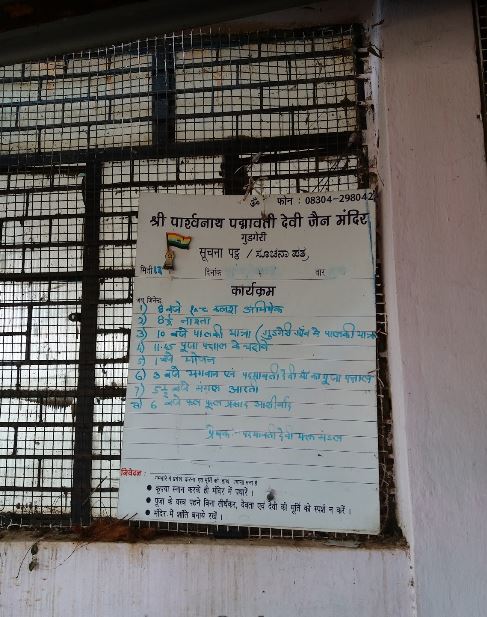 ॐ फोन : 08304-298042
श्री पार्श्वनाथ पद्मावती देवी जैन मंदिर
गुडगेरी
सूचना पट्ट / ಸೂಚನಾ ಪತ್ರ
मिती दिनांक वार
कार्यक्रम
1) 8 बजे १००८ कलश अभिषेक
2) 8½ नाश्ता
3) 10 बजे पालकी यात्रा (गुडगेरी गाँव में पालकी यात्रा
4) 11.45 पूजा पंडाल में
5) 1 बजे भोजन
6) 3 बजे भगवान एवं पदमावती देवी माँ का पूजा पंडाल
7) 5½ बजे मंगल आरती
8) 6 बजे फल फूल प्रसाद आशीर्वाद
प्रेषक - पदमावती देवी भक्त मंडल
निवेदन :
• कृपया स्नान करके ही मंदिर में पधारें ।
• पूजा के वस्त्र पहने बिना तीर्थंकर, देवता एवं देवी की मूर्ति को स्पर्श न करें ।
• मंदिर में शांति बनाये रखें ।